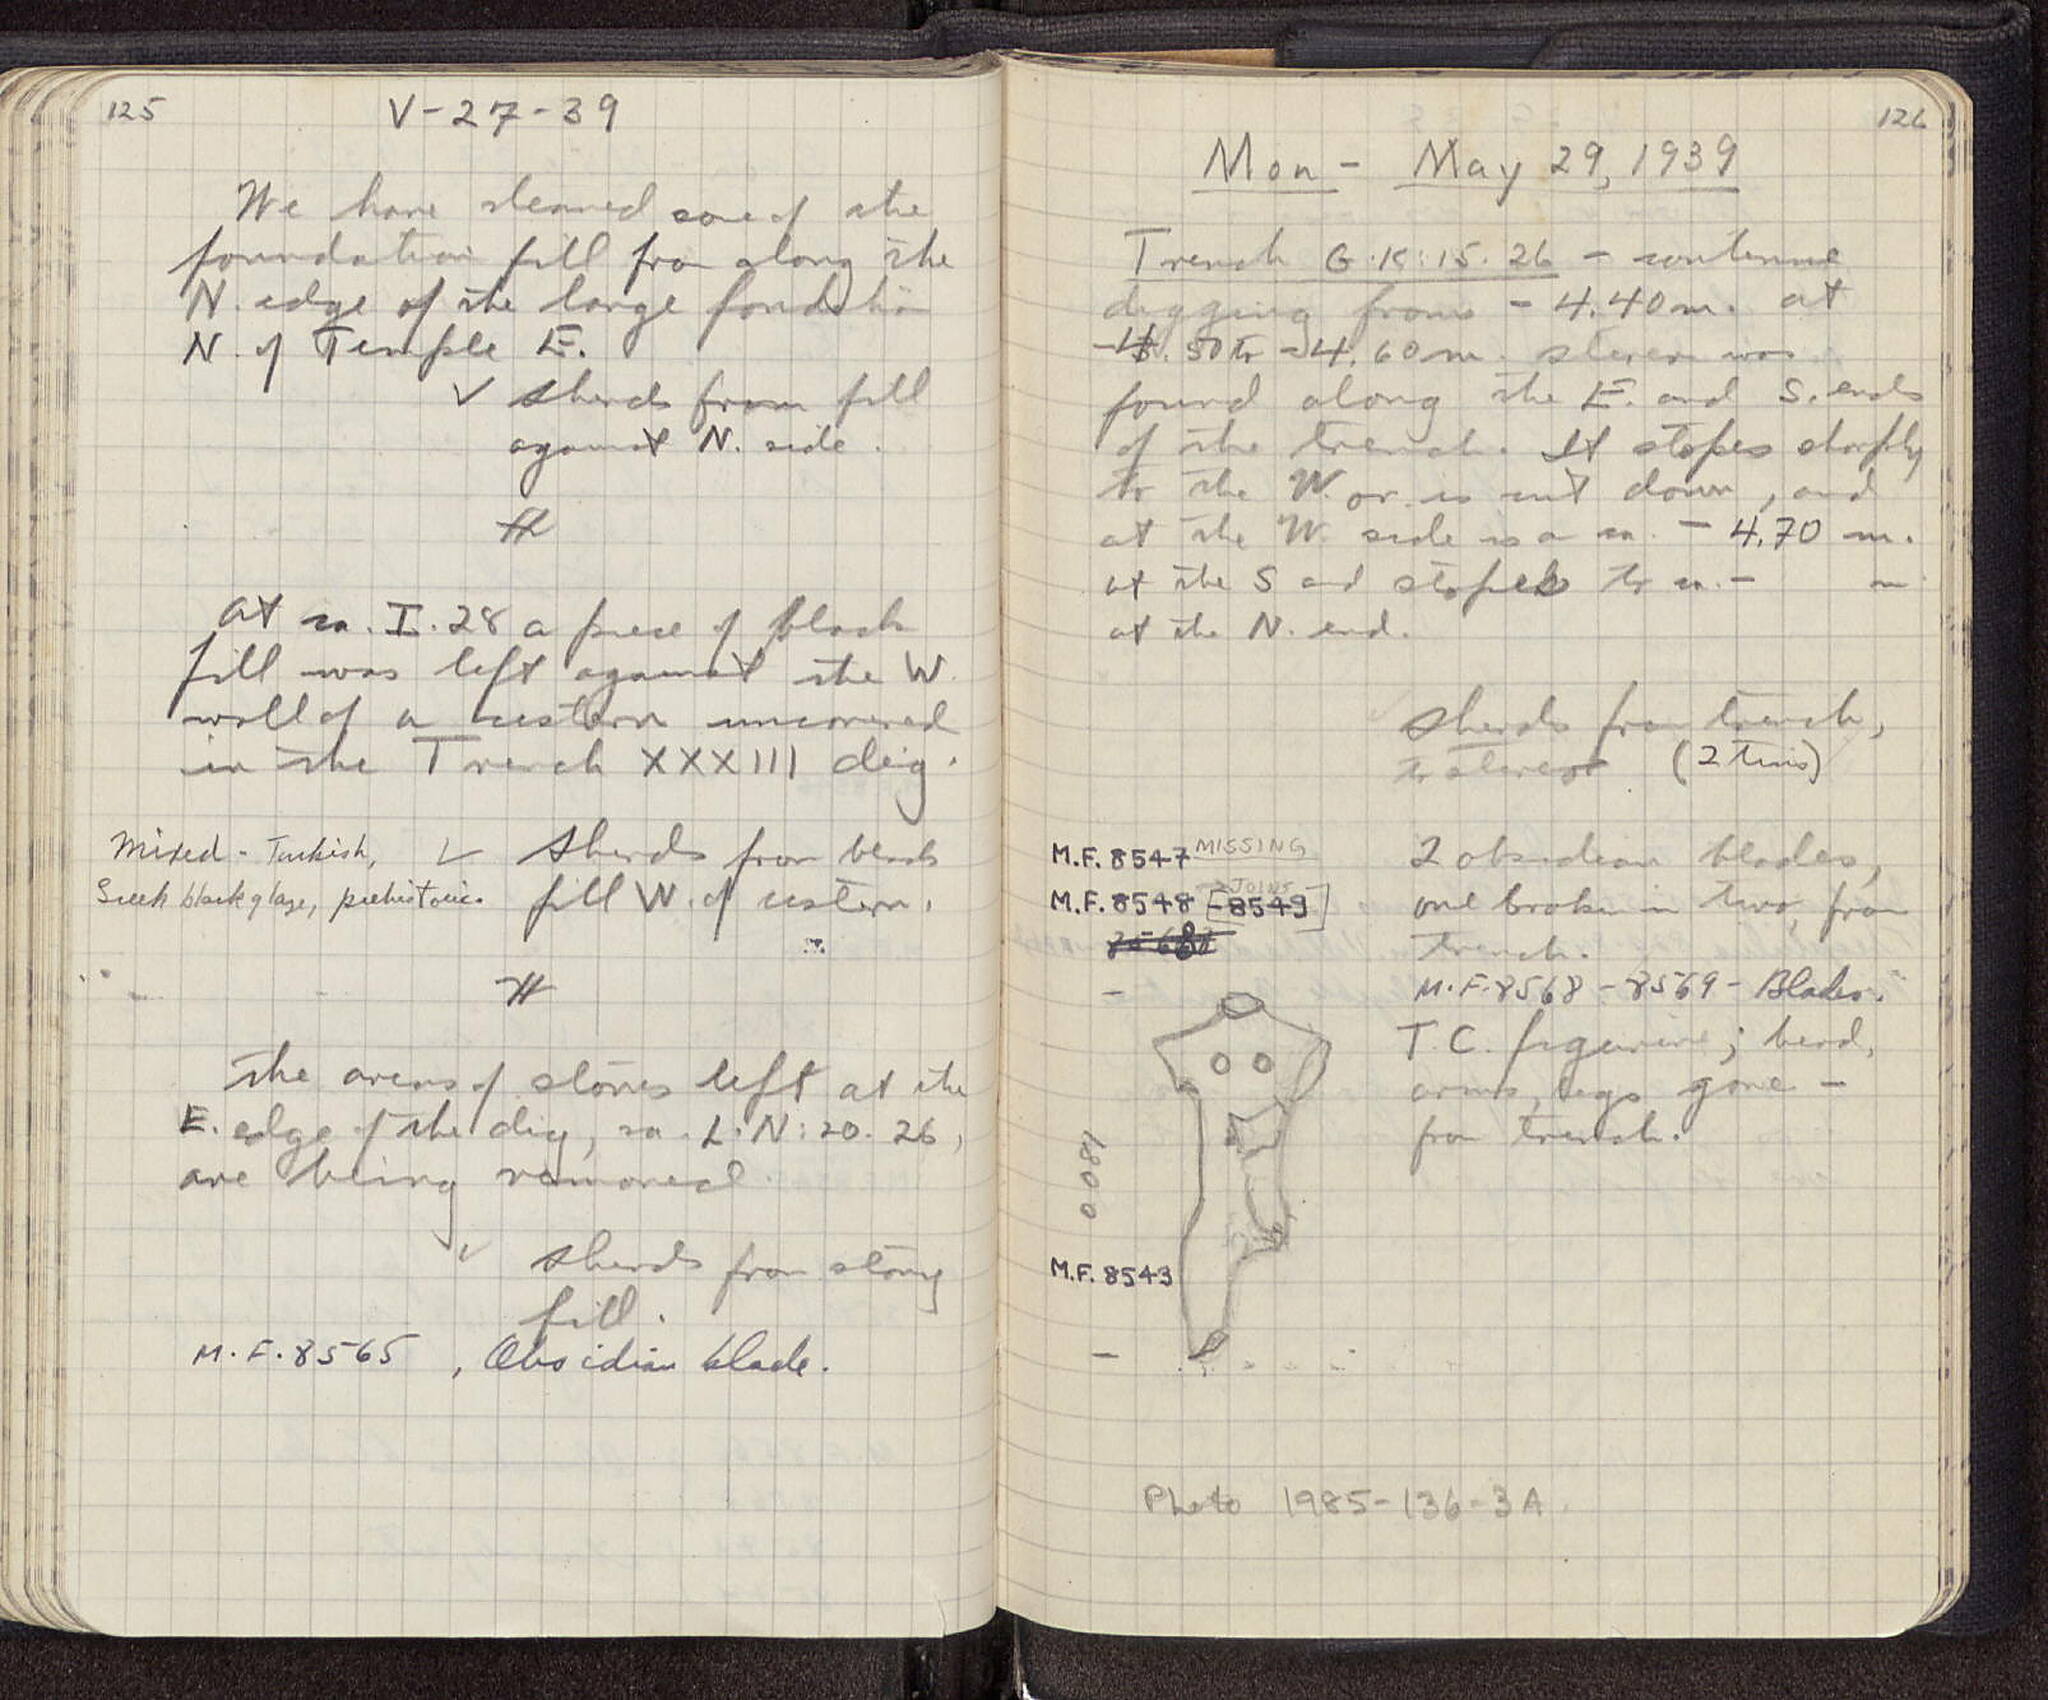 125
V-27-39
We have cleaned some of the
foundation fill from along the
N. edge of the large foundation
N. of Temple E.
✓ sherds from fill
against N. side.
At ca. I.28 a piece of black
fill was left against the W.
wall of a cistern uncovered
in the Trench XXXIII dig.
Mixed - Turkish,
Greek black glaze, prehistoric.
✓ Sherds from black
fill W. of cistern.
The areas of stones left at the
E. edge of the dig, ca. L-N:20-26,
are being removed.
✓ sherds from stony
fill.
M.F. 8565, Obsidian blade.
126
Mon - May 29, 1939
Trench G-K:15-26 - continue
digging from -4.40m. at
-4.50 to -4.60m. stereo was
found along the E. and S. ends
of the trench. It slopes sharply
to the W. or is cut down, and
at the W. side is a ca. -4.70 m.
at the S and slopes to ca. - m
at the N. end.
sherds from trench,
to stereo (2 tins)
M.F. 8547 MISSING
M.F. 8548 [-8549] JOINS
2 obsidian blades,
one broken in two, from
trench.
M.F. 8568-8569 - Blades.
T.C. figurine; head,
arms, legs gone -
from trench.
0.081
M.F. 8543
Photo 1985-136-3A